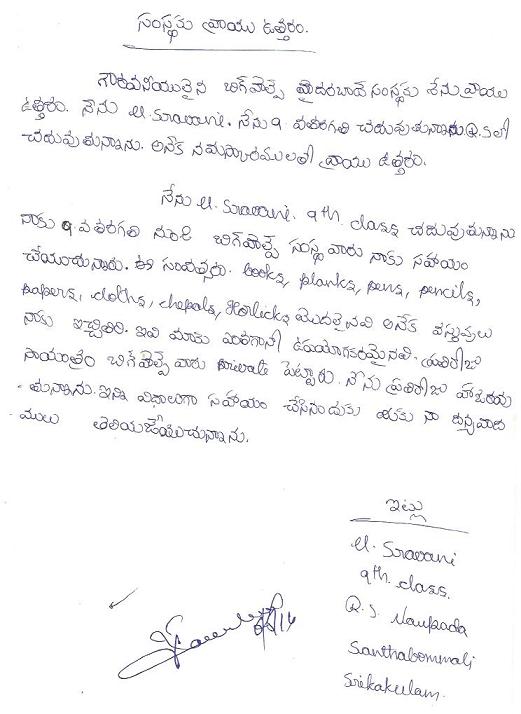 సంస్థకు వ్రాయు ఉత్తరం.
గౌరవనియులైన బిగ్‌హెల్ప్ హైదరబాద్ సంస్థకు నేను వ్రాయు
ఉత్తరం. నేను U. Sravani. నేను 9 వతరగతి చదువుతున్నాను R.S లో
చదువుతున్నాను. అనేక నమస్కారములతో వ్రాయు ఉత్తరం.
నేను U. Sravani. 9th. class చదువుతున్నాను
నాకు 9 వతరగతి నుండి బిగ్‌హెల్ప్ సంస్థ వారు నాకు సహాయం
చేయుచున్నారు. ఈ సంవత్సరం. books, planks, pens, pencils,
papers, cloths, chepals, Horlicks మొదలైనవి అనేక వస్తువులు
నాకు ఇచ్చితిరి. ఇవి మాకు ఎంతగానో ఉపయోగకరమైనవి. ప్రతిరోజు
సాయంత్రం బిగ్‌హెల్ప్ వారు private పెట్టారు. నేను ప్రతిరోజు హాజరవు
తున్నాను. ఇన్ని విధాలుగా సహాయం చేసినందుకు మీకు నా ధన్యవాద
ములు తెలియజేయుచున్నాను.
ఇట్లు
U. Sravani
9th. class.
R. S. Naupada
Santhabommali
Srikakulam.